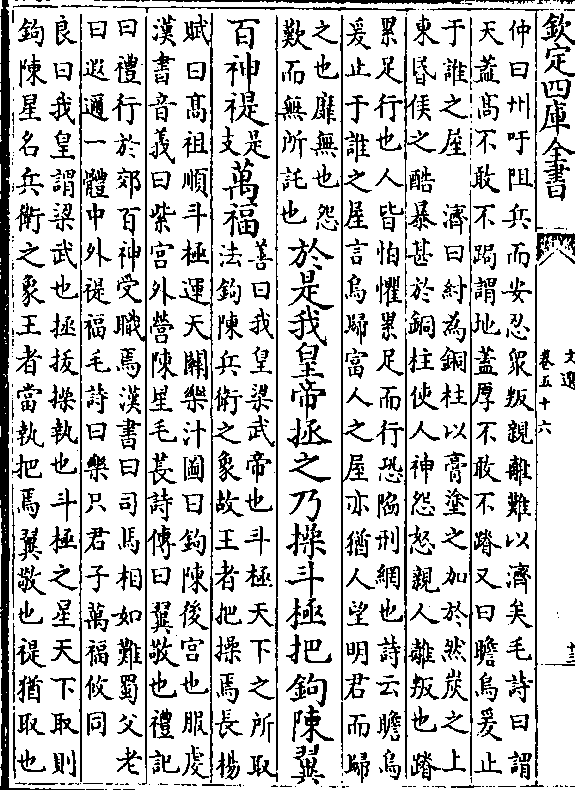 欽定四庫全書
文選
卷五十六
十三
仲曰州吁阻兵而安忍衆叛親離難以濟矣毛詩曰謂
天蓋髙不敢不跼謂地蓋厚不敢不蹐又曰瞻烏爰止
于誰之屋　濟曰紂為銅柱以膏塗之加於然炭之上
東昏侯之酷暴甚於銅柱使人神怨怒親人離叛也蹐
累足行也人皆怕懼累足而行恐陷刑網也詩云瞻烏
爰止于誰之屋言烏歸富人之屋亦猶人望明君而歸
之也靡無也怨
歎而無所託也
於是我皇帝拯之乃操斗極把鉤陳翼
百神禔是支萬福
善曰我皇梁武帝也斗極天下之所取
法鉤陳兵衛之象故王者把操焉長楊
賦曰髙祖順斗極運天關樂汁圖曰鉤陳後宫也服䖍
漢書音義曰紫宫外營陳星毛萇詩傳曰翼敬也禮記
曰禮行於郊百神受職焉漢書曰司馬相如難蜀父老
曰遐邇一體中外禔福毛詩曰樂只君子萬福攸同
良曰我皇謂梁武也拯拔操執也斗極之星天下取則
鉤陳星名兵衛之象王者當執把焉翼敬也禔猶取也